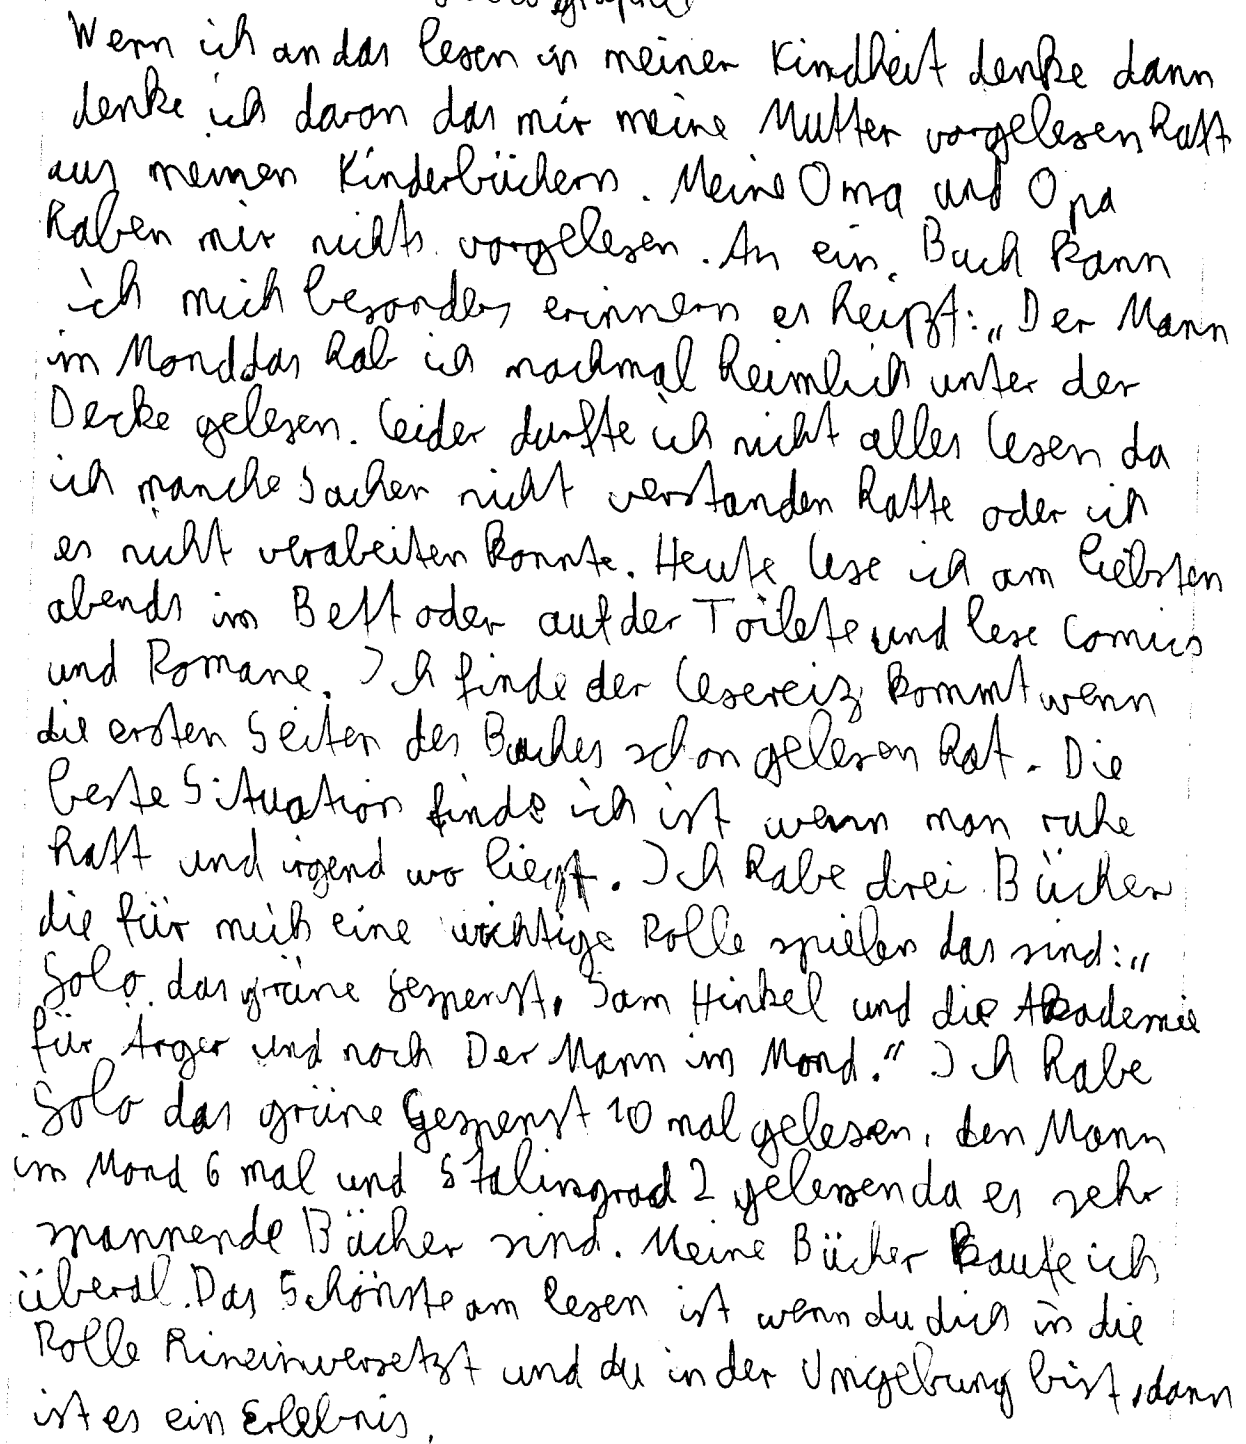 Wenn ich an das lesen in meiner Kindheit denke dann
denke ich daran das mir meine Mutter vorgelesen hatt
aus meinen Kinderbüchern. Meine Oma und Opa
haben mir nichts vorgelesen. An ein. Buch kann
ich mich besonders erinnern es heißt: „Der Mann
im Mond das hab ich nachmal heimlich unter der
Decke gelesen. Leider durfte ich nicht alles lesen da
ich manche Sachen nicht verstanden hatte oder ich
es nicht verabeiten konnte. Heute lese ich am liebsten
abends im Bett oder auf der Toilete und lese Comics
und Romane. Ich finde der Lesereiz kommt wenn
die ersten Seiten des Buches schon gelesen hat. Die
beste Situation finde ich ist wenn man ruhe
hatt und irgend wo liegt. Ich habe drei Bücher
die für mich eine wichtige Rolle spielen das sind: „
Golo das grüne Gespenst, Sam Hinkel und die Akademie
für Ärger und noch Der Mann im Mond." Ich habe
Golo das grüne Gespenst 10 mal gelesen, den Mann
im Mond 6 mal und Stalingrad 2 gelesen da es sehr
spannende Bücher sind. Meine Bücher kaufe ich
überal. Das Schönste am lesen ist wenn du dich in die
Rolle hineinversetzt und du in der Umgebung bist, dann
ist es ein Erlebnis.